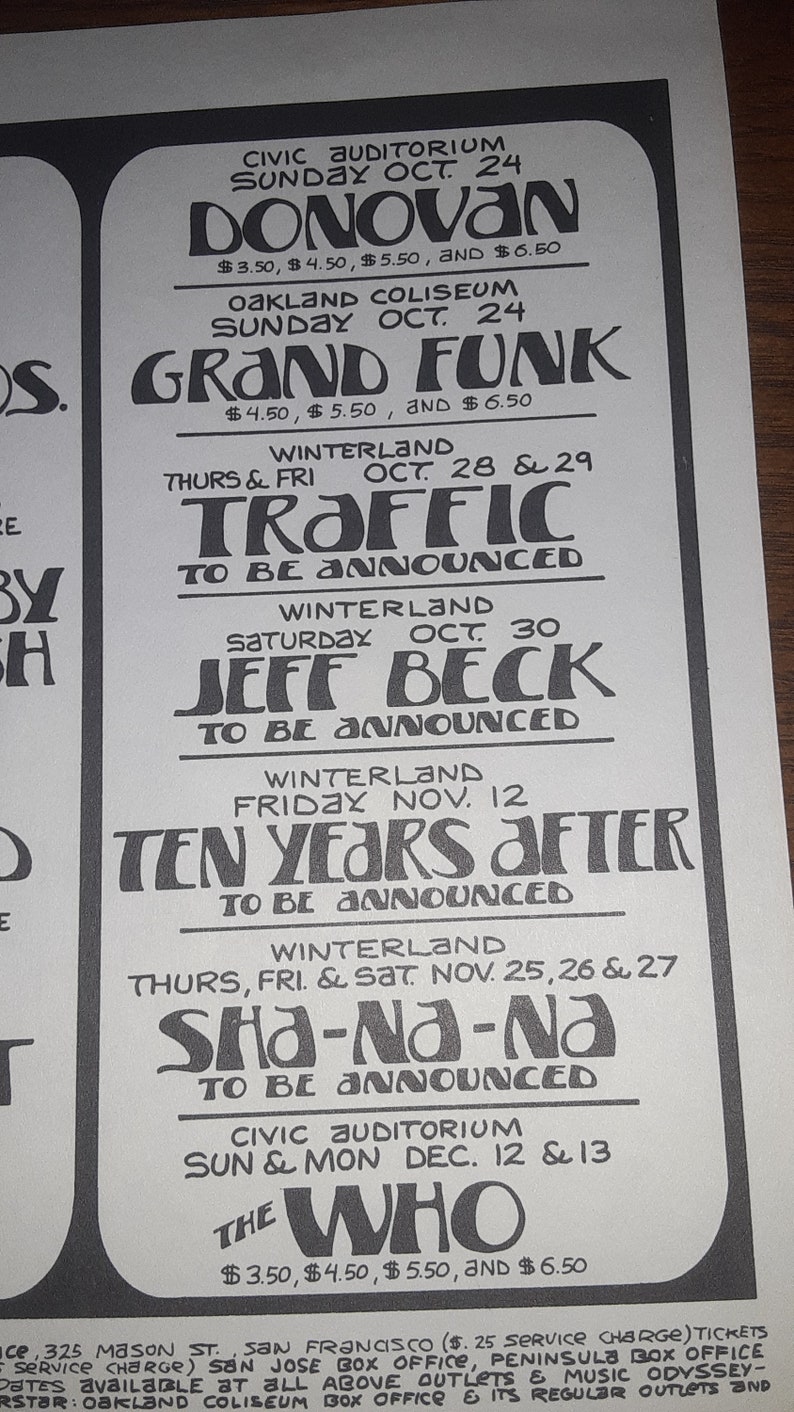 CIVIC AUDITORIUM
SUNDAY OCT. 24
DONOVAN
$3.50, $4.50, $5.50, AND $6.50
OAKLAND COLISEUM
SUNDAY OCT. 24
GRAND FUNK
$4.50, $5.50, AND $6.50
WINTERLAND
THURS & FRI OCT. 28 & 29
TRAFFIC
TO BE ANNOUNCED
WINTERLAND
SATURDAY OCT. 30
JEFF BECK
TO BE ANNOUNCED
WINTERLAND
FRIDAY NOV. 12
TEN YEARS AFTER
TO BE ANNOUNCED
WINTERLAND
THURS, FRI. & SAT. NOV. 25, 26 & 27
SHA-NA-NA
TO BE ANNOUNCED
CIVIC AUDITORIUM
SUN & MON DEC. 12 & 13
THE WHO
$3.50, $4.50, $5.50, AND $6.50
, 325 MASON ST., SAN FRANCISCO ($.25 SERVICE CHARGE) TICKETS
SERVICE CHARGE) SAN JOSE BOX OFFICE, PENINSULA BOX OFFICE
DATES AVAILABLE AT ALL ABOVE OUTLETS & MUSIC ODYSSEY-
: OAKLAND COLISEUM BOX OFFICE & ITS REGULAR OUTLETS AND